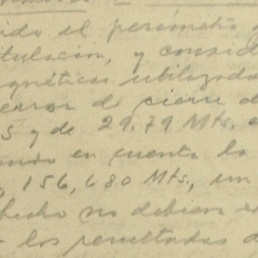 ido el perímetro
titulación, y consid
gnéticas utilizada
error de cierre d
S y de 29.79 Mts.
en cuenta la
, 156,680 Mts., un
hecho no debien e
los resultados d